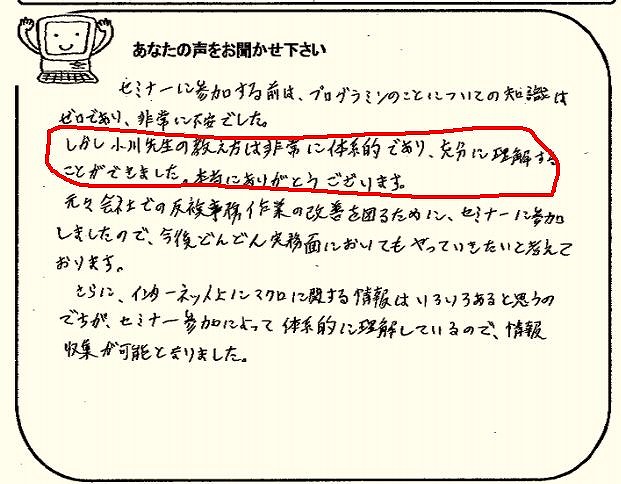 あなたの声をお聞かせ下さい
セミナーに参加する前は、プログラミングのことについての知識は
ゼロであり、非常に不安でした。
しかし小川先生の教え方は非常に体系的であり、充分に理解する
ことができました。本当にありがとうございます。
元々会社での反複事務作業の改善を図るために、セミナーに参加
しましたので、今後どんどん実務面においてもやっていきたいと考えて
おります。
さらに、インターネット上にマクロに関する情報はいろいろあると思うの
ですが、セミナー参加によって体系的に理解しているので、情報
収集が可能となりました。